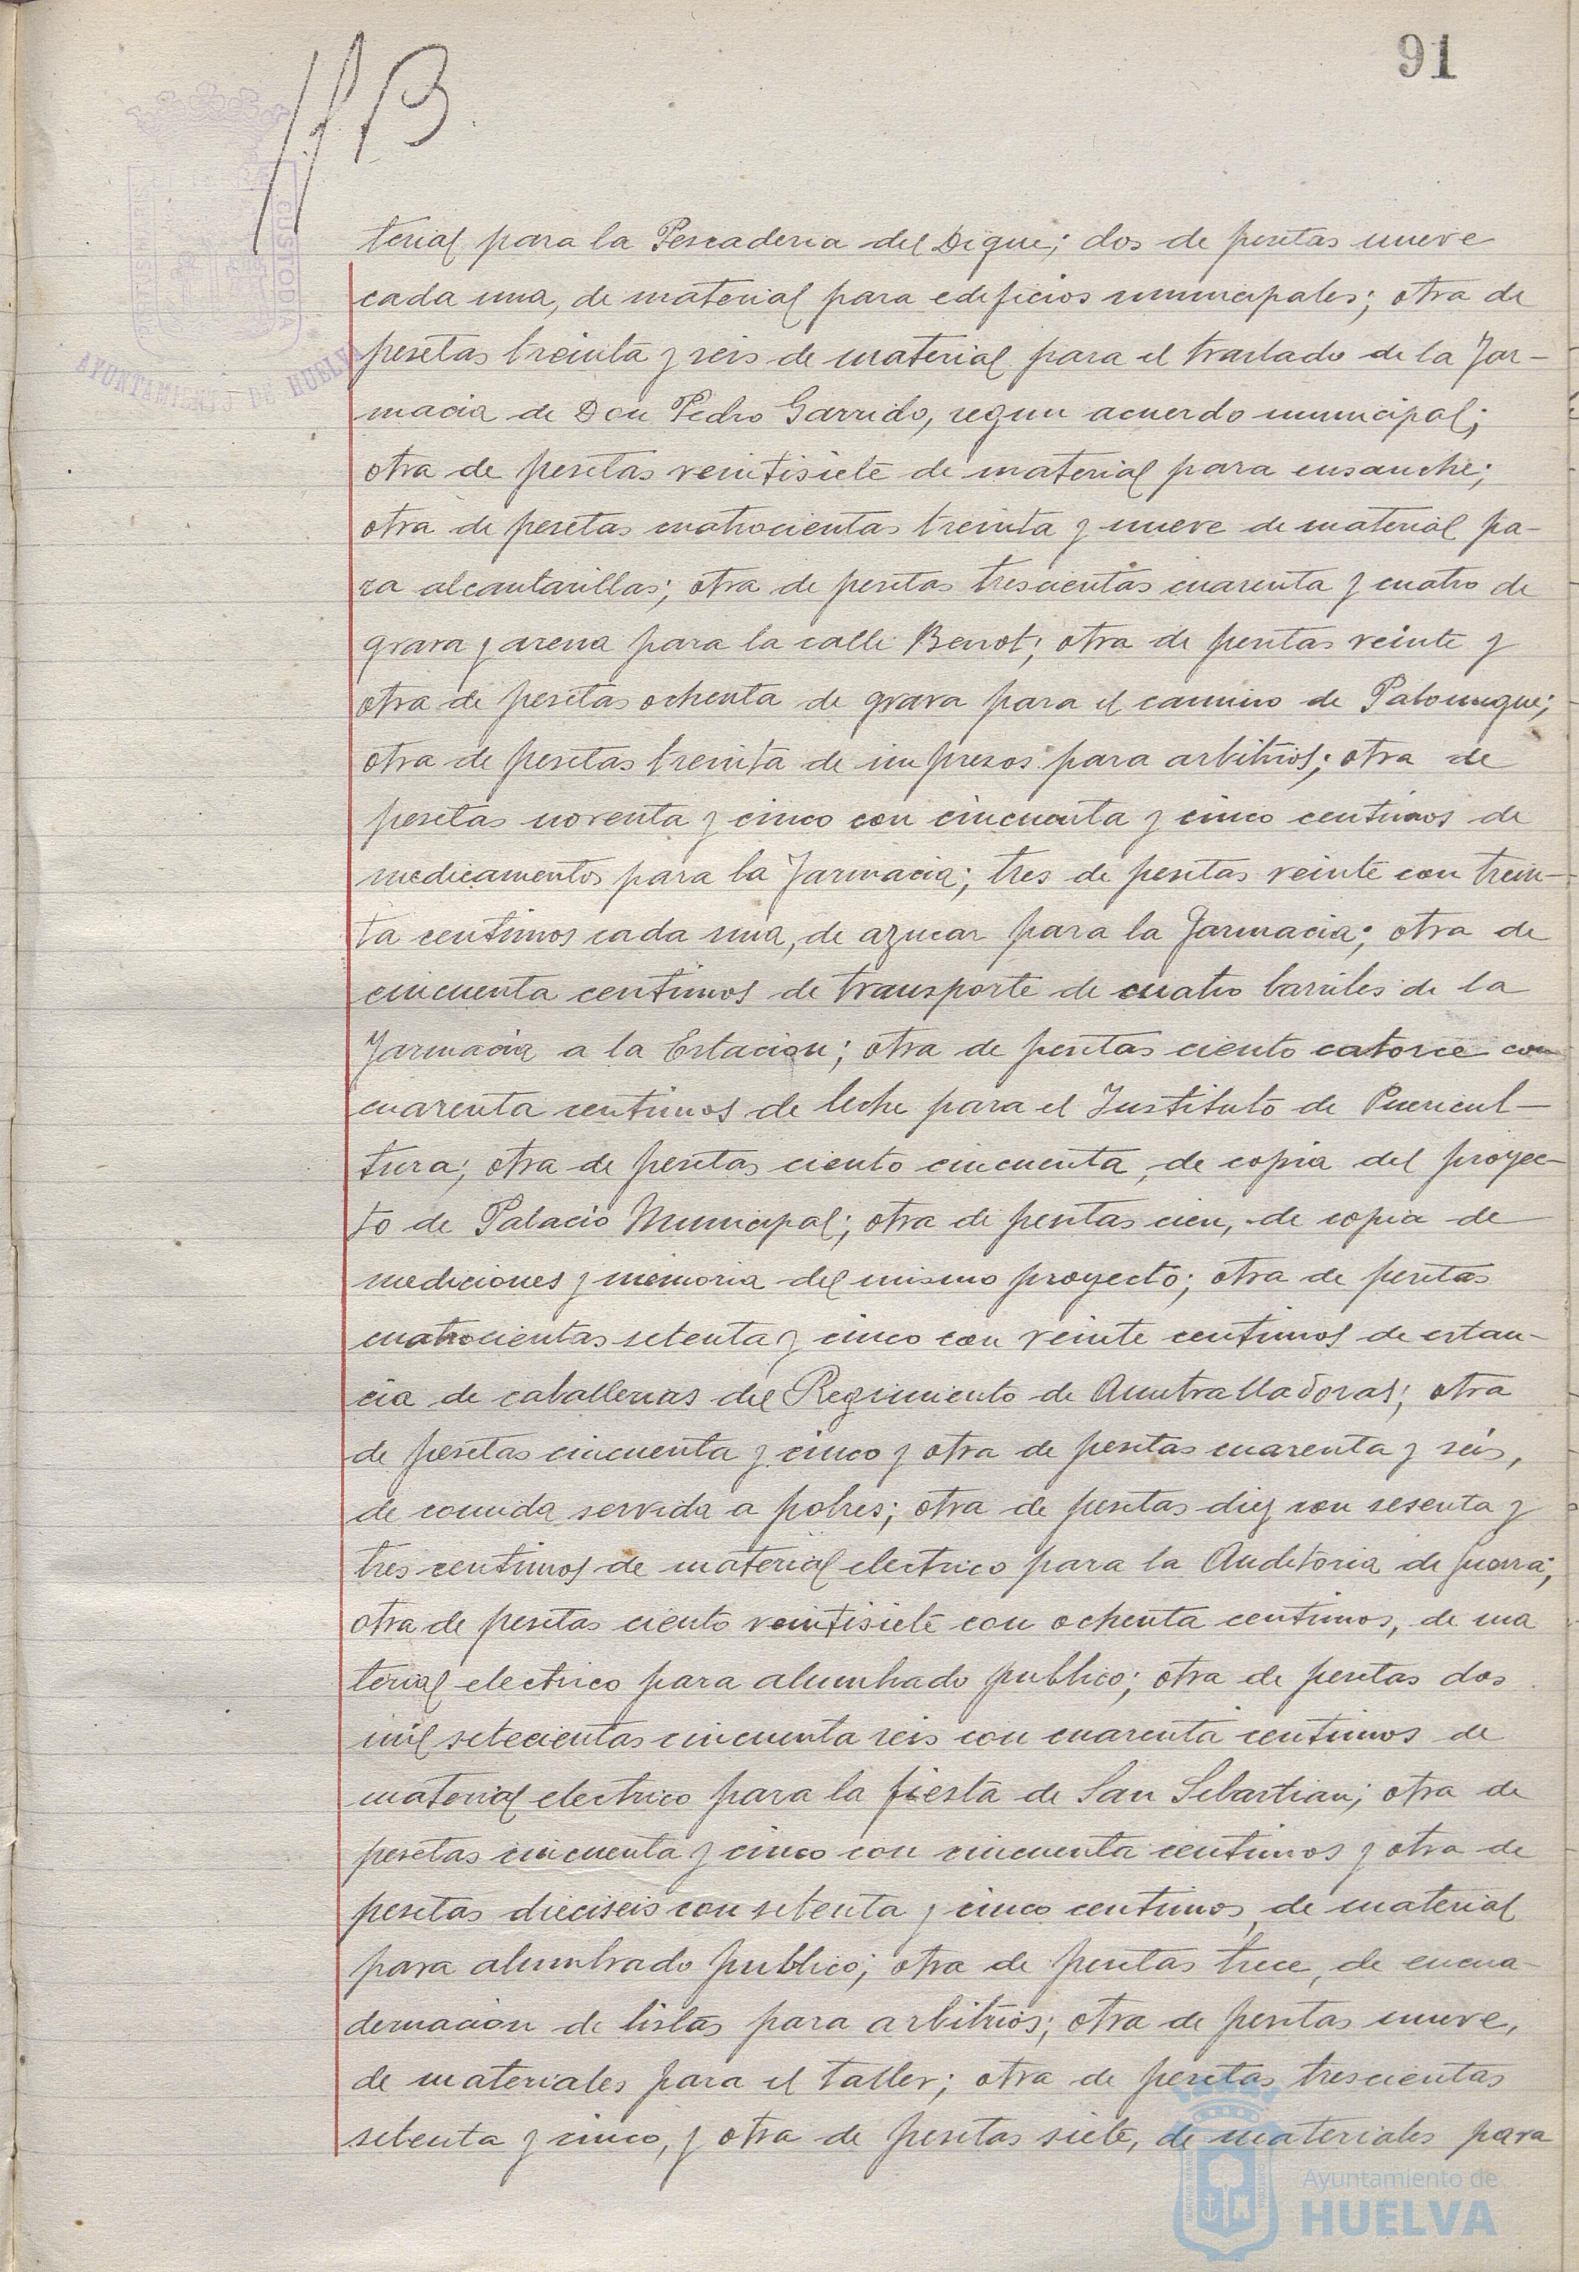 91
terial para la Pescaderia del Dique; dos de pesetas nueve
cada una, de material para edificios municipales; otra de
pesetas treinta y seis de material para el traslado de la Far-
macia de Don Pedro Garrido, segun acuerdo municipal;
otra de pesetas veintisiete de material para ensanche;
otra de pesetas cuatrocientas treinta y nueve de material pa-
ra alcantarillas; otra de pesetas trescientas cuarenta y cuatro de
grava y arena para la calle Berrot; otra de pesetas veinte y
otra de pesetas ochenta de grava para el camino de Palomeque;
otra de pesetas treinta de impresos para arbitrios; otra de
pesetas noventa y cinco con cincuenta y cinco centimos de
medicamentos para la Farmacia; tres de pesetas veinte con trein-
ta centimos cada una, de azucar para la Farmacia; otra de
cincuenta centimos de transporte de cuatro barriles de la
Farmacia a la Estacion; otra de pesetas ciento catorce con
cuarenta centimos de leche para el Instituto de Puericul-
tura; otra de pesetas ciento cincuenta, de copia del proyec-
to de Palacio Municipal; otra de pesetas cien, de copia de
mediciones y memoria del mismo proyecto; otra de pesetas
cuatrocientas setenta y cinco con veinte centimos de estan-
cia de caballerias del Regimiento de Ametralladoras; otra
de pesetas cincuenta y cinco y otra de pesetas cuarenta y seis,
de comida servida a pobres; otra de pesetas diez con sesenta y
tres centimos de material electrico para la Auditoria de guerra;
otra de pesetas ciento veintisiete con ochenta centimos, de ma
terial electrico para alumbrado publico; otra de pesetas dos
mil setecientas cincuenta seis con cuarenta centimos de
material electrico para la fiesta de San Sebastian; otra de
pesetas cincuenta y cinco con cincuenta centimos y otra de
pesetas dieciseis con setenta y cinco centimos, de material
para alumbrado publico; otra de pesetas trece, de encua-
dernacion de listas para arbitrios; otra de pesetas nueve,
de materiales para el taller; otra de pesetas trescientas
setenta y cinco, y otra de pesetas siete, de materiales para
AYUNTAMIENTO DE HUELVA
CUSTODIA
Ayuntamiento de
HUELVA